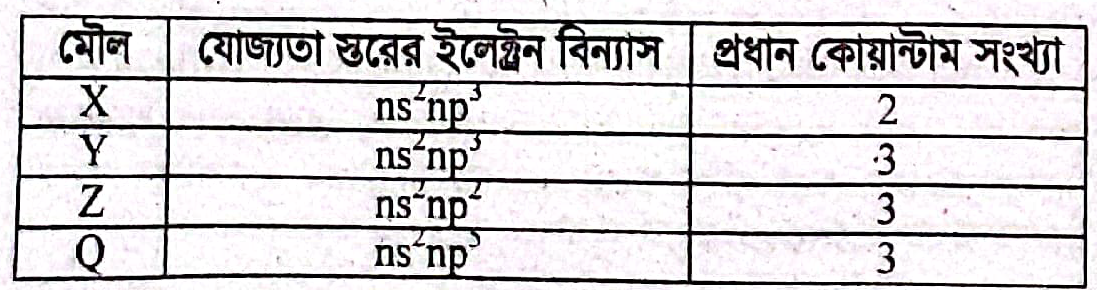 মৌল যোজ্যতা স্তরের ইলেক্ট্রন বিন্যাস প্রধান কোয়ান্টাম সংখ্যা
X ns²np³ 2
Y ns²np³ 3
Z ns²np² 3
Q ns²np⁵ 3